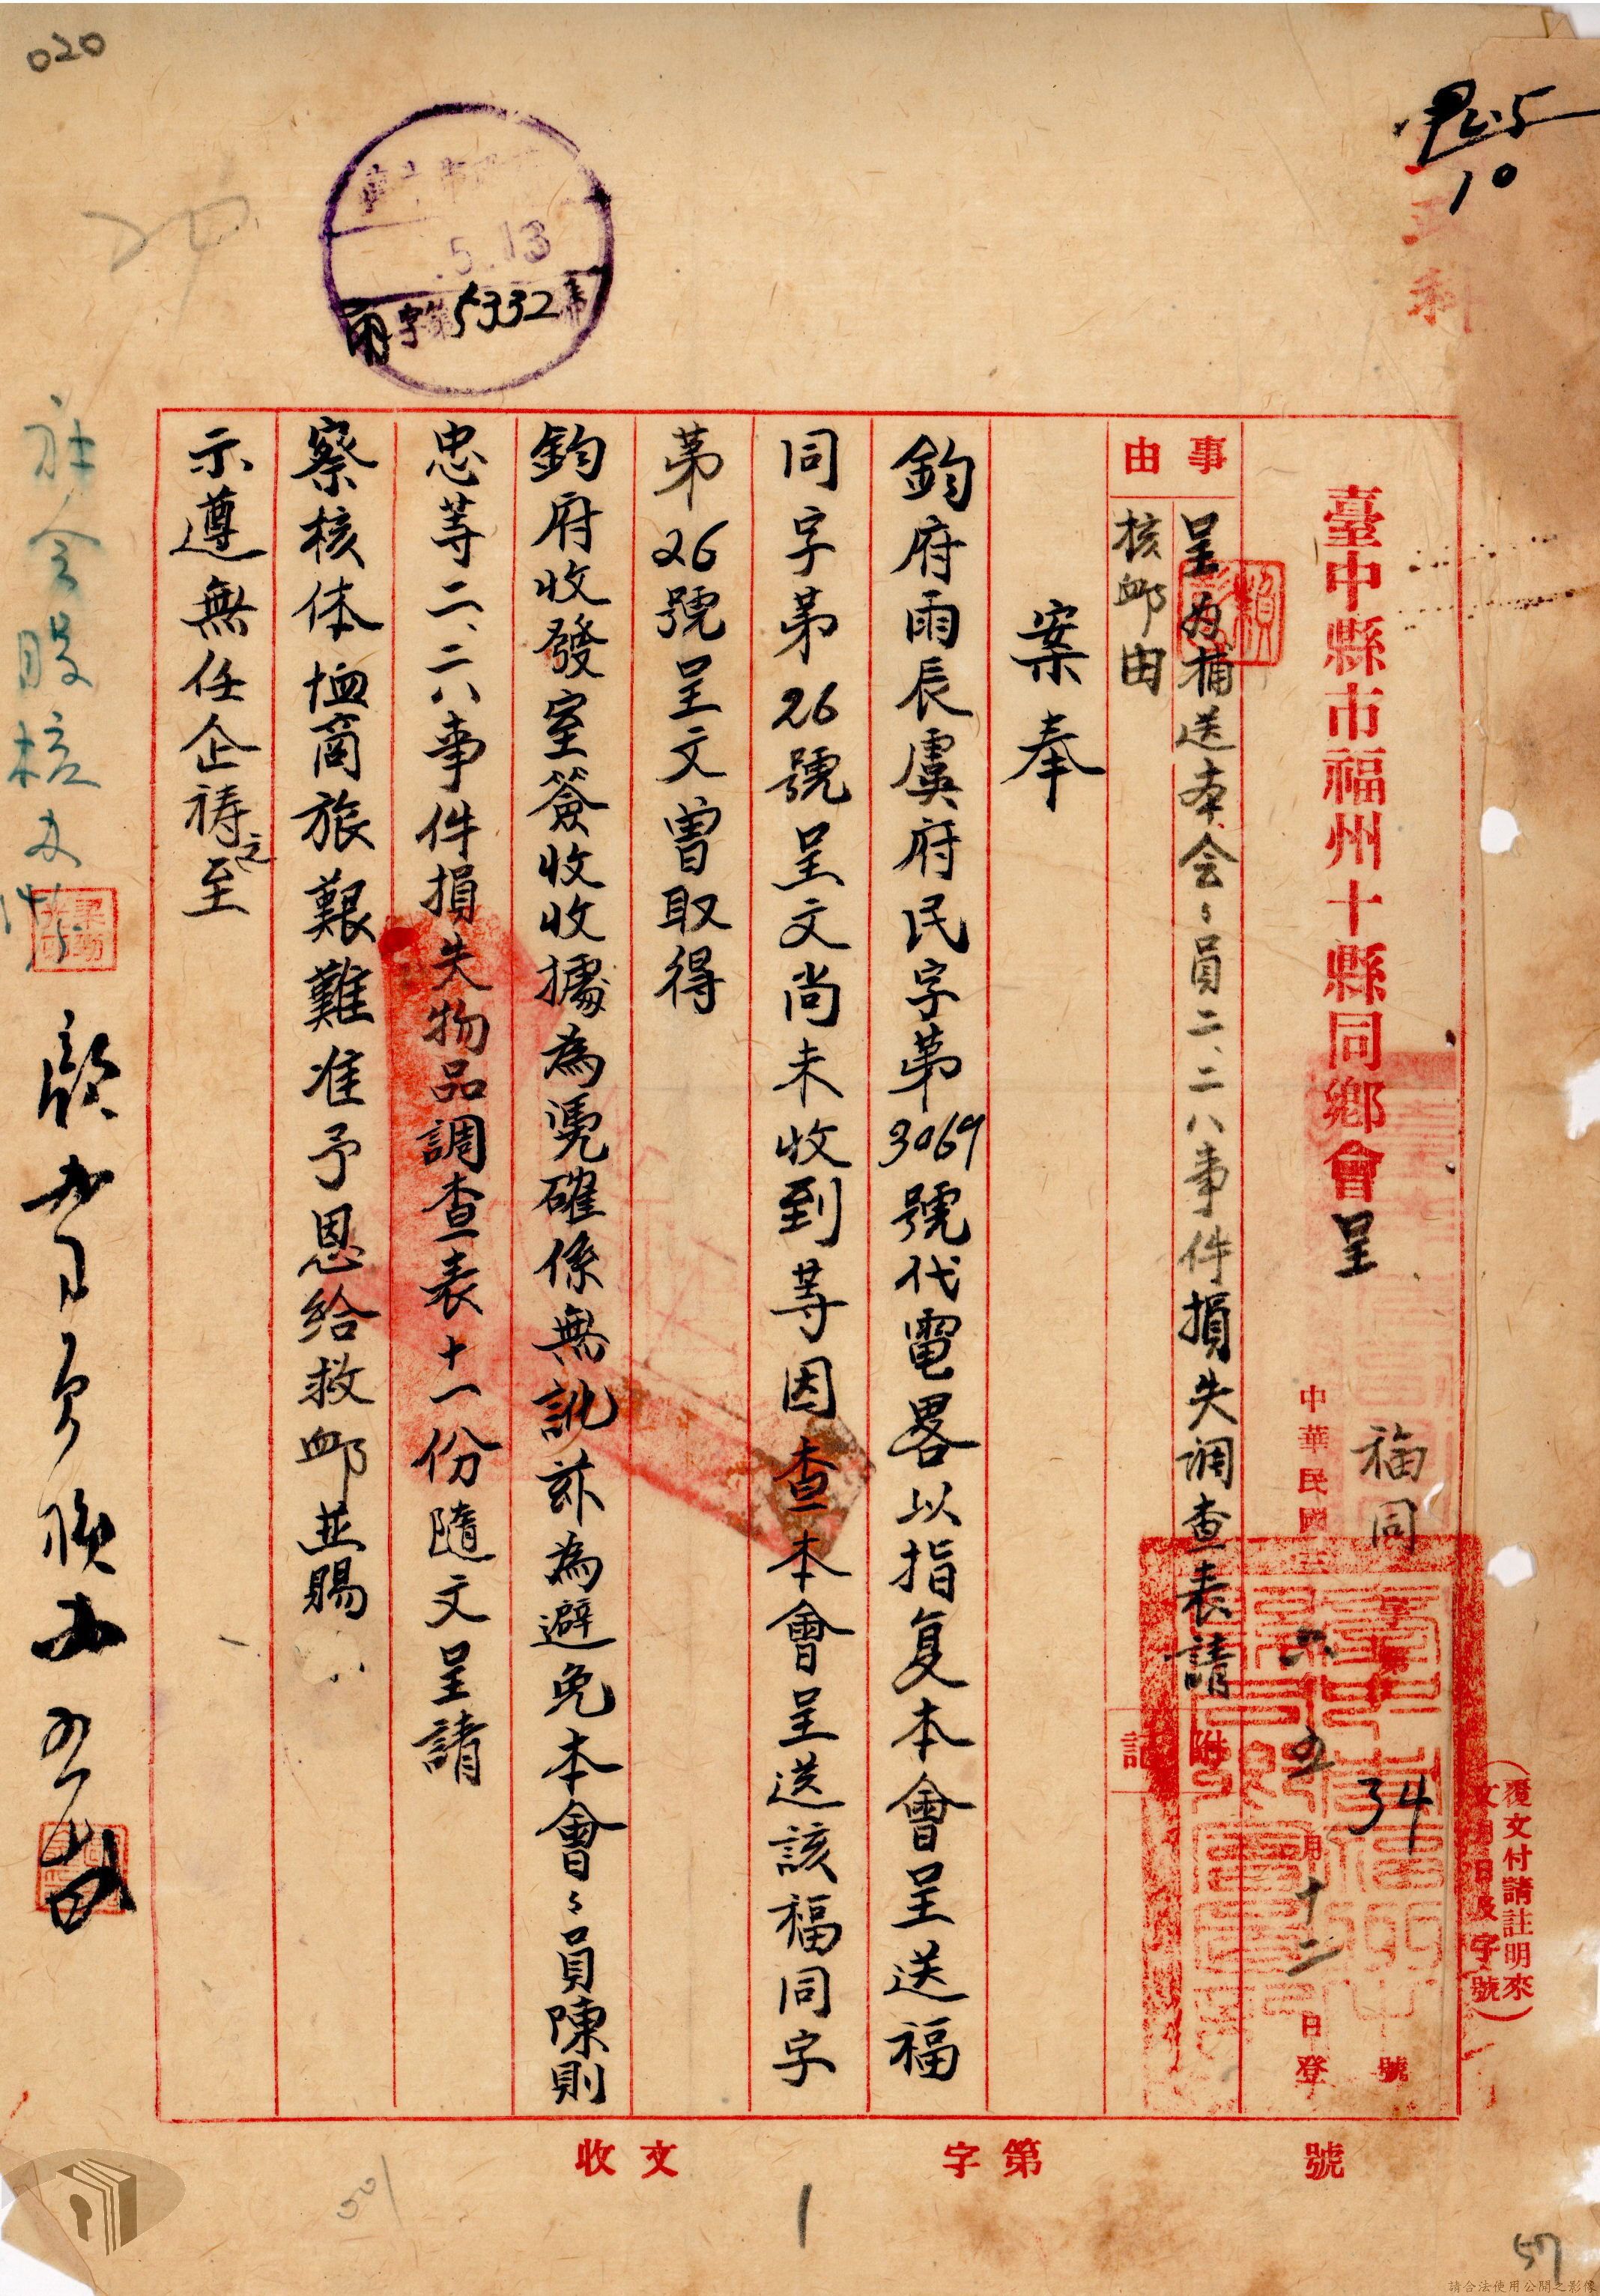 臺中縣市福州十縣同鄉會呈
福同
34
號
中華民國三六五月十二日登
(覆文付請註明來
文月日及字號)
事由
呈为補送本会々員二、二八事件損失调查表請
核卹由
附記
案奉
鈞府雨辰虞府民字第3069號代電畧以指复本會呈送福
同字第26號呈文尚未收到等因查本會呈送該福同字
第26號呈文曾取得
鈞府收發室簽收收據為憑確係無訛茲為避免本會々員陳則
忠等二、二八事件損失物品調查表十一份隨文呈請
察核体恤商旅艱難准予恩給救卹並賜
示遵無任企祷之至
社会股核办
號
第
字
文
收
5.13
字第5332號
020
10
1
57
請合法使用公開之影像